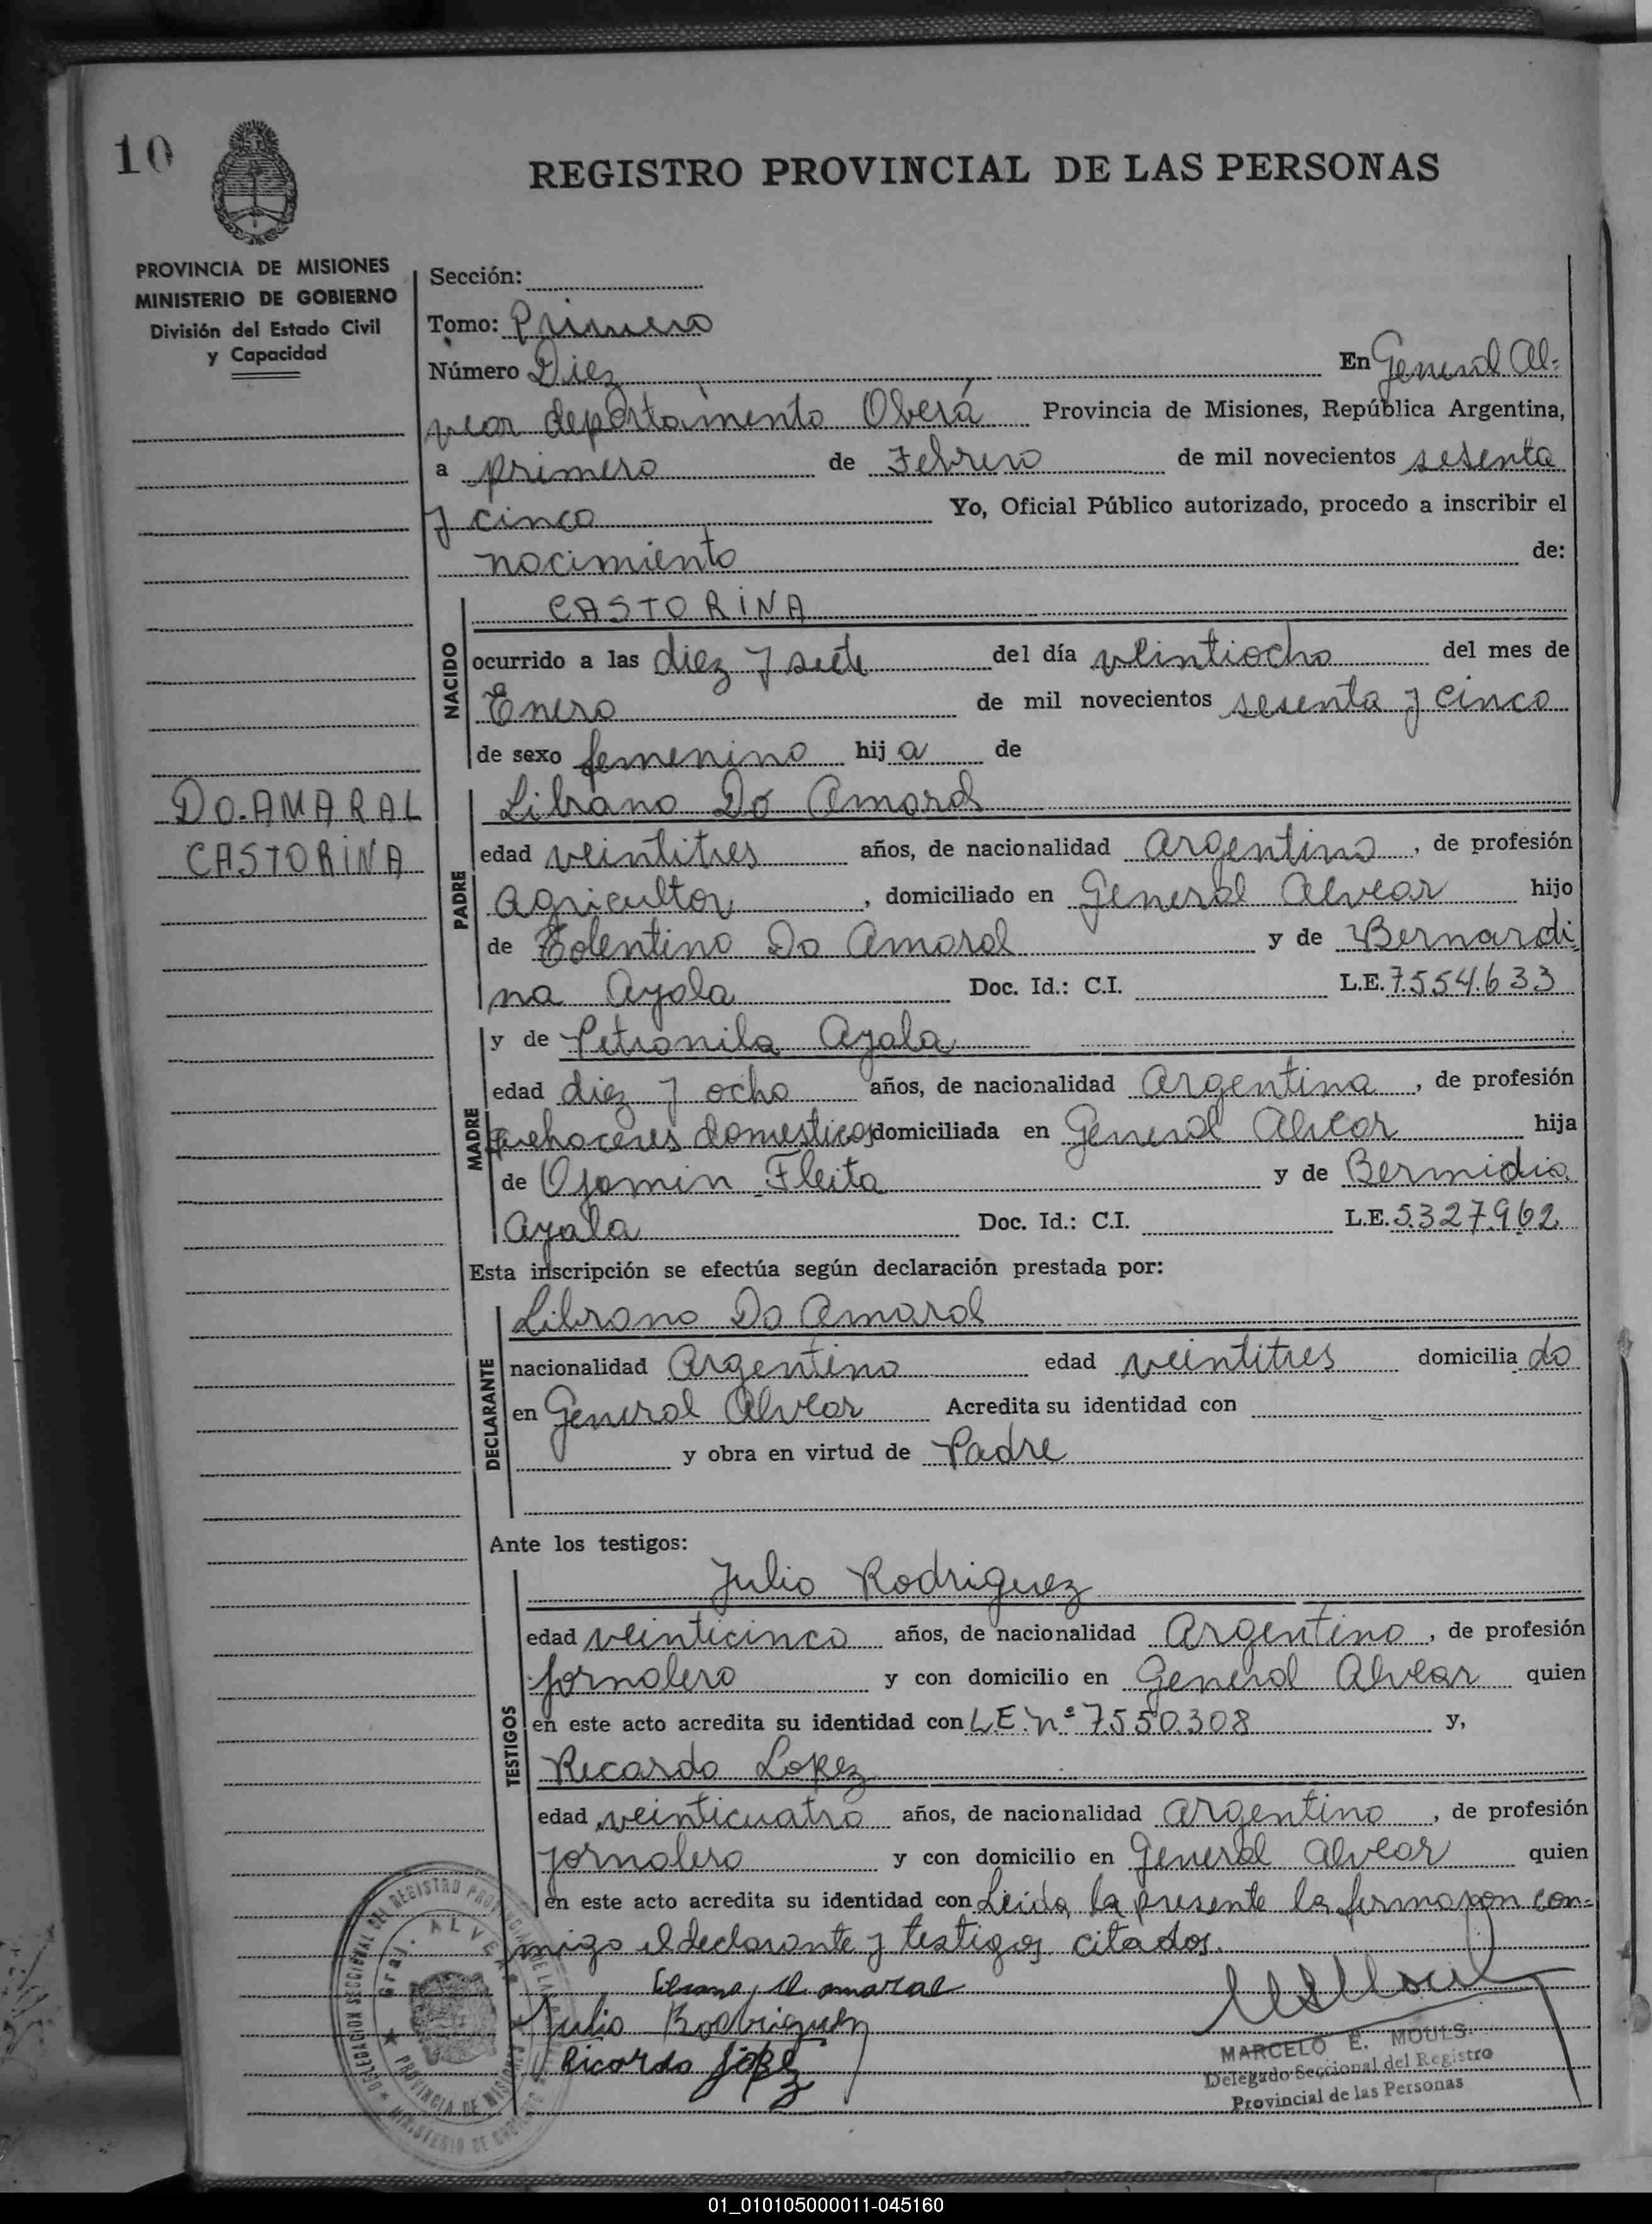 10
REGISTRO PROVINCIAL DE LAS PERSONAS
PROVINCIA DE MISIONES
MINISTERIO DE GOBIERNO
División del Estado Civil
y Capacidad
Sección:
Tomo: Primero
Número Diez En General Al-
vear departamento Oberá Provincia de Misiones, República Argentina,
a primero de Febrero de mil novecientos sesenta
y cinco Yo, Oficial Público autorizado, procedo a inscribir el
nacimiento de:
NACIDO
CASTORINA
ocurrido a las diez y siete del día veintiocho del mes de
Enero de mil novecientos sesenta y cinco
de sexo femenino hij a de
DO.AMARAL
CASTORINA
PADRE
Librano Do Amaral
edad veintitres años, de nacionalidad Argentino, de profesión
Agricultor, domiciliado en General Alvear hijo
de Tolentino Do Amaral y de Bernardi-
na Ayala Doc. Id.: C.I. L.E. 7.554.633
MADRE
y de Petronila Ayala
edad diez y ocho años, de nacionalidad Argentina, de profesión
quehaceres domesticos domiciliada en General Alvear hija
de Ojamin Fleita y de Bermidia
Ayala Doc. Id.: C.I. L.E. 5.327.962
Esta inscripción se efectúa según declaración prestada por:
DECLARANTE
Librano Do Amaral
nacionalidad Argentino edad veintitres domicilia do
en General Alvear Acredita su identidad con
y obra en virtud de Padre
Ante los testigos:
TESTIGOS
Julio Rodriguez
edad veinticinco años, de nacionalidad Argentino, de profesión
jornalero y con domicilio en General Alvear quien
en este acto acredita su identidad con L.E. nº 7.550.308 y,
Ricardo Lopez
edad veinticuatro años, de nacionalidad argentino, de profesión
jornalero y con domicilio en General Alvear quien
en este acto acredita su identidad con Leida la presente la firmaron con-
migo el declarante y testigos citados.
amaral
Julio Rodriguez
Ricardo Lopez
MARCELO E. MOULS
Delegado Seccional del Registro
Provincial de las Personas
DELEGACION SECCIONAL DEL REGISTRO PROVINCIAL DE LAS
Gral. ALVEAR
PROVINCIA DE MISIONES
MINISTERIO DE GOBIERNO
01_010105000011-045160